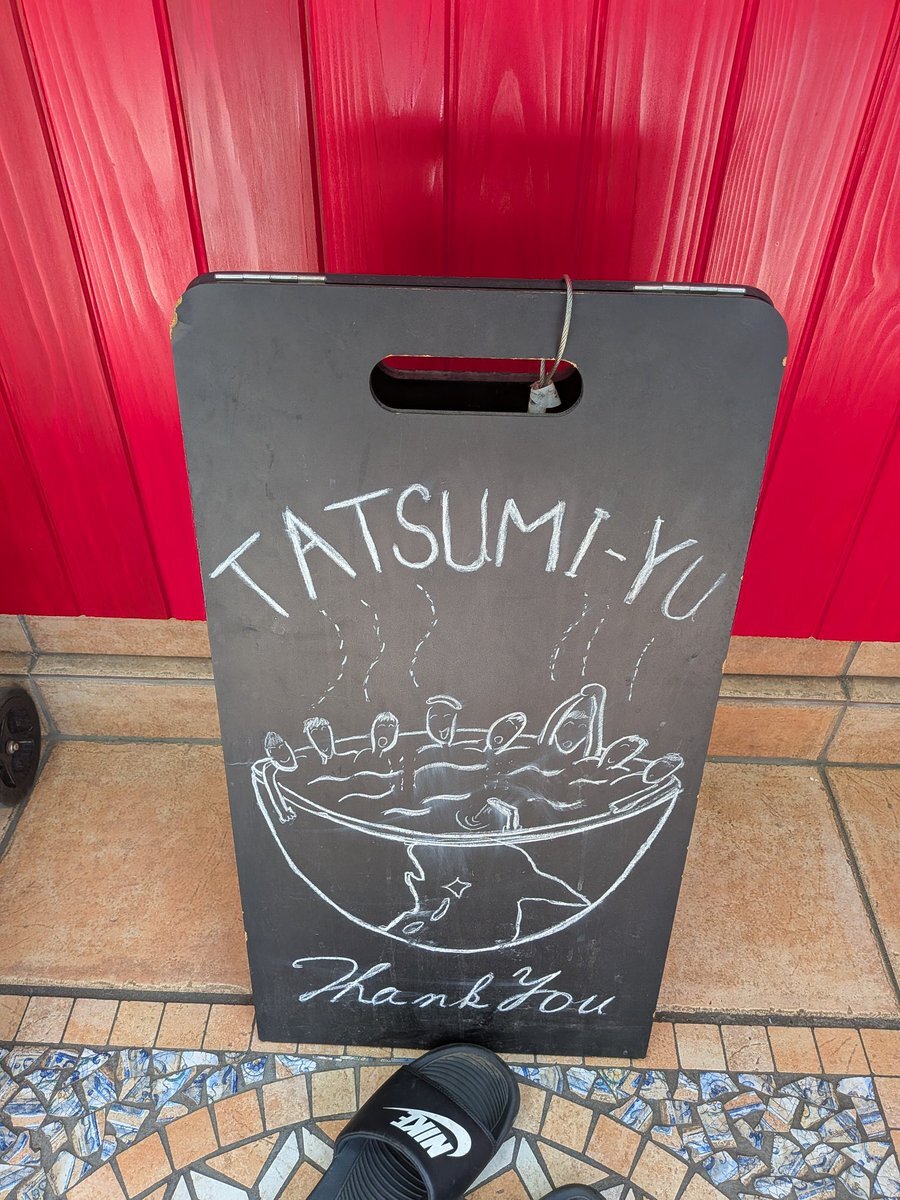 TATSUMI-YU
Thank You
NIKE